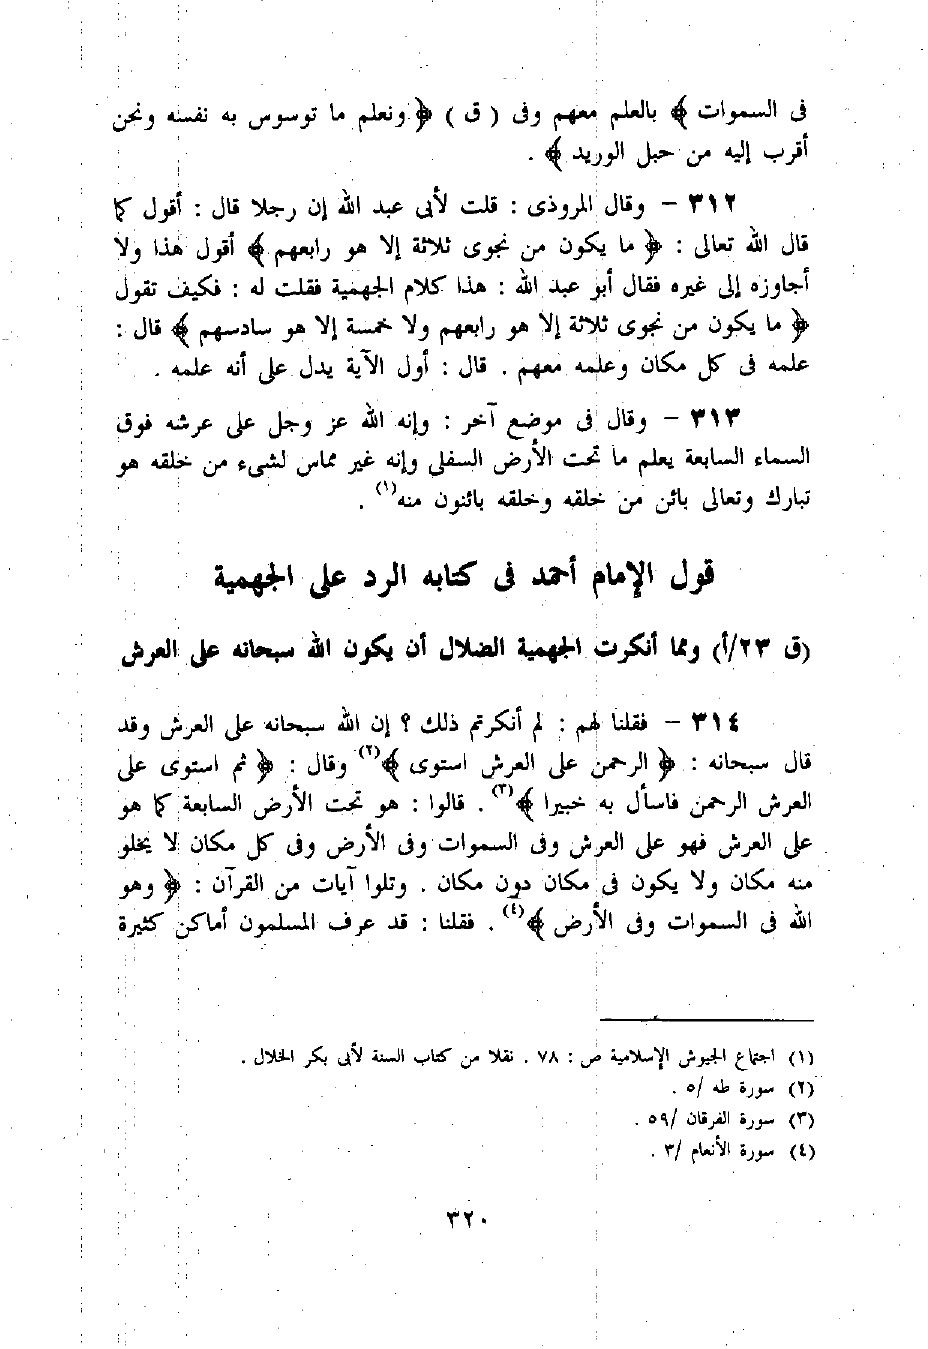 فى السموات ﴾ بالعلم معهم وفى ( ق ) ﴿ ونعلم ما توسوس به نفسه ونحن
أقرب إليه من حبل الوريد ﴾ .
٣١٢ – وقال المروذى : قلت لأبى عبد الله إن رجلا قال : أقول كما
قال الله تعالى : ﴿ ما يكون من نجوى ثلاثة إلا هو رابعهم ﴾ أقول هذا ولا
أجاوزه إلى غيره فقال أبو عبد الله : هذا كلام الجهمية فقلت له : فكيف تقول
﴿ ما يكون من نجوى ثلاثة إلا هو رابعهم ولا خمسة إلا هو سادسهم ﴾ قال :
علمه فى كل مكان وعلمه معهم . قال : أول الآية يدل على أنه علمه .
٣١٣ – وقال فى موضع آخر : وإنه الله عز وجل على عرشه فوق
السماء السابعة يعلم ما تحت الأرض السفلى وإنه غير مماس لشىء من خلقه هو
تبارك وتعالى بائن من خلقه وخلقه بائنون منه(١) .
قول الإمام أحمد فى كتابه الرد على الجهمية
(ق ٢٣/أ) ومما أنكرت الجهمية الضلال أن يكون الله سبحانه على العرش
٣١٤ – فقلنا لهم : لم أنكرتم ذلك ؟ إن الله سبحانه على العرش وقد
قال سبحانه : ﴿ الرحمن على العرش استوى ﴾(٢) وقال : ﴿ ثم استوى على
العرش الرحمن فاسأل به خبيرا ﴾(٣) . قالوا : هو تحت الأرض السابعة كما هو
على العرش فهو على العرش وفى السموات وفى الأرض وفى كل مكان لا يخلو
منه مكان ولا يكون فى مكان دون مكان . وتلوا آيات من القرآن : ﴿ وهو
الله فى السموات وفى الأرض ﴾(٤) . فقلنا : قد عرف المسلمون أماكن كثيرة
(١) اجتماع الجيوش الإسلامية ص : ٧٨ . نقلا من كتاب السنة لأبى بكر الخلال .
(٢) سورة طه /٥ .
(٣) سورة الفرقان /٥٩ .
(٤) سورة الأنعام /٣ .
٣٢٠